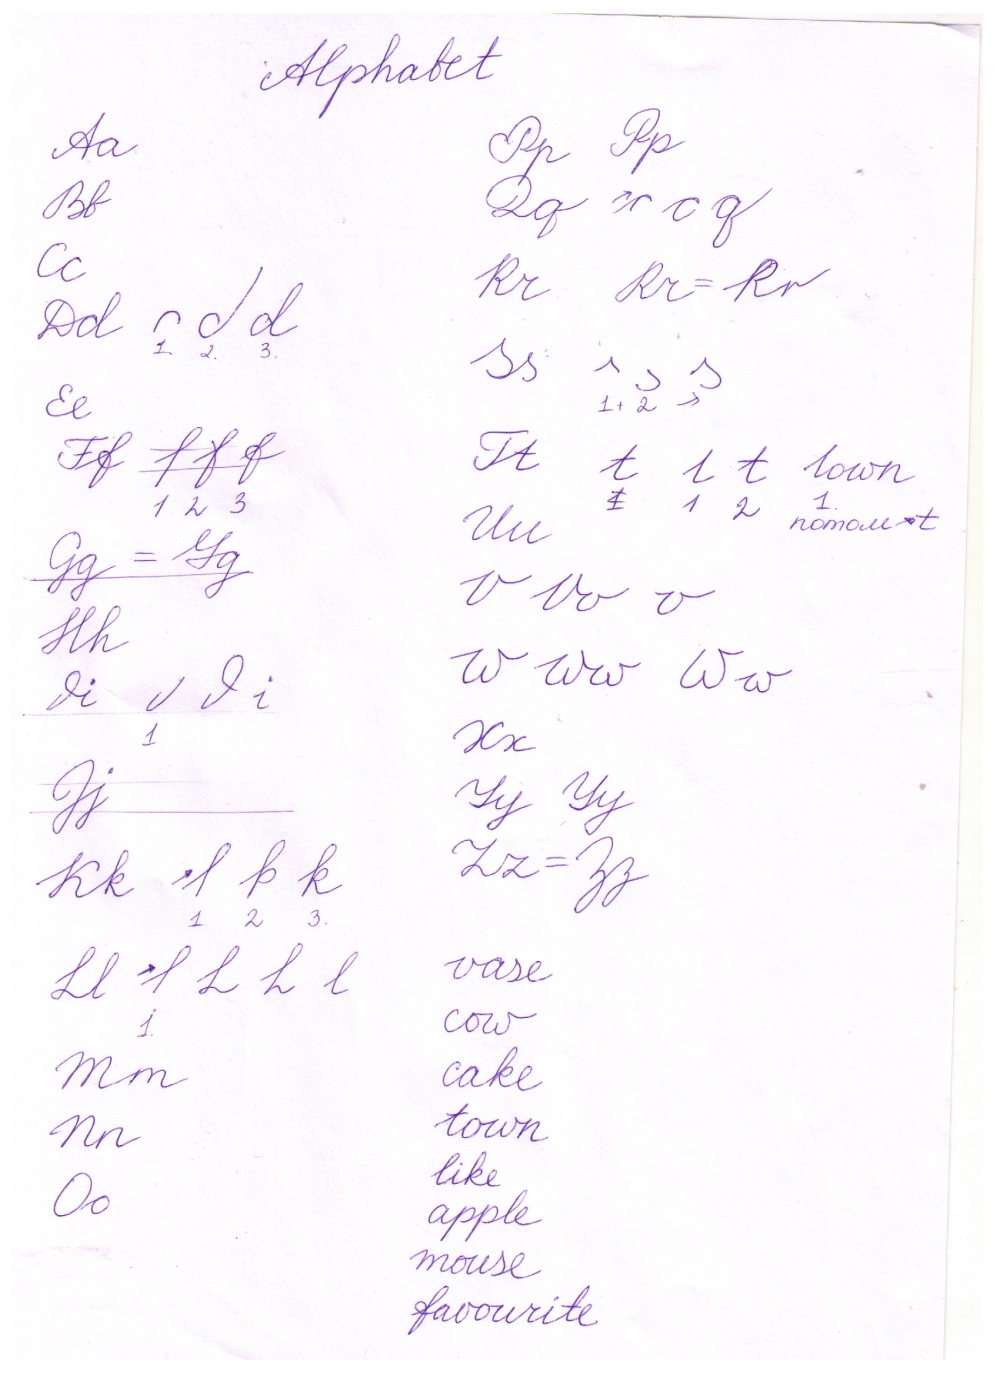 Alphabet
Aa
Bb
Cc
Dd d d
1. 2. 3.
Ee
Ff f f f
1 2 3
Gg = Gg
Hh
Ii I i
1
Jj
Kk k
1 2 3.
Ll l L L l
1.
Mm
Nn
Oo
Pp Pp
Qq c q
Rr Rr = Rr
Ss s
1+ 2 →
Tt t t t town
1 1 2 1.
потом t
Uu
V Vv v
W Ww Ww
Xx
Yy Yy
Zz = Zz
vase
cow
cake
town
like
apple
mouse
favourite